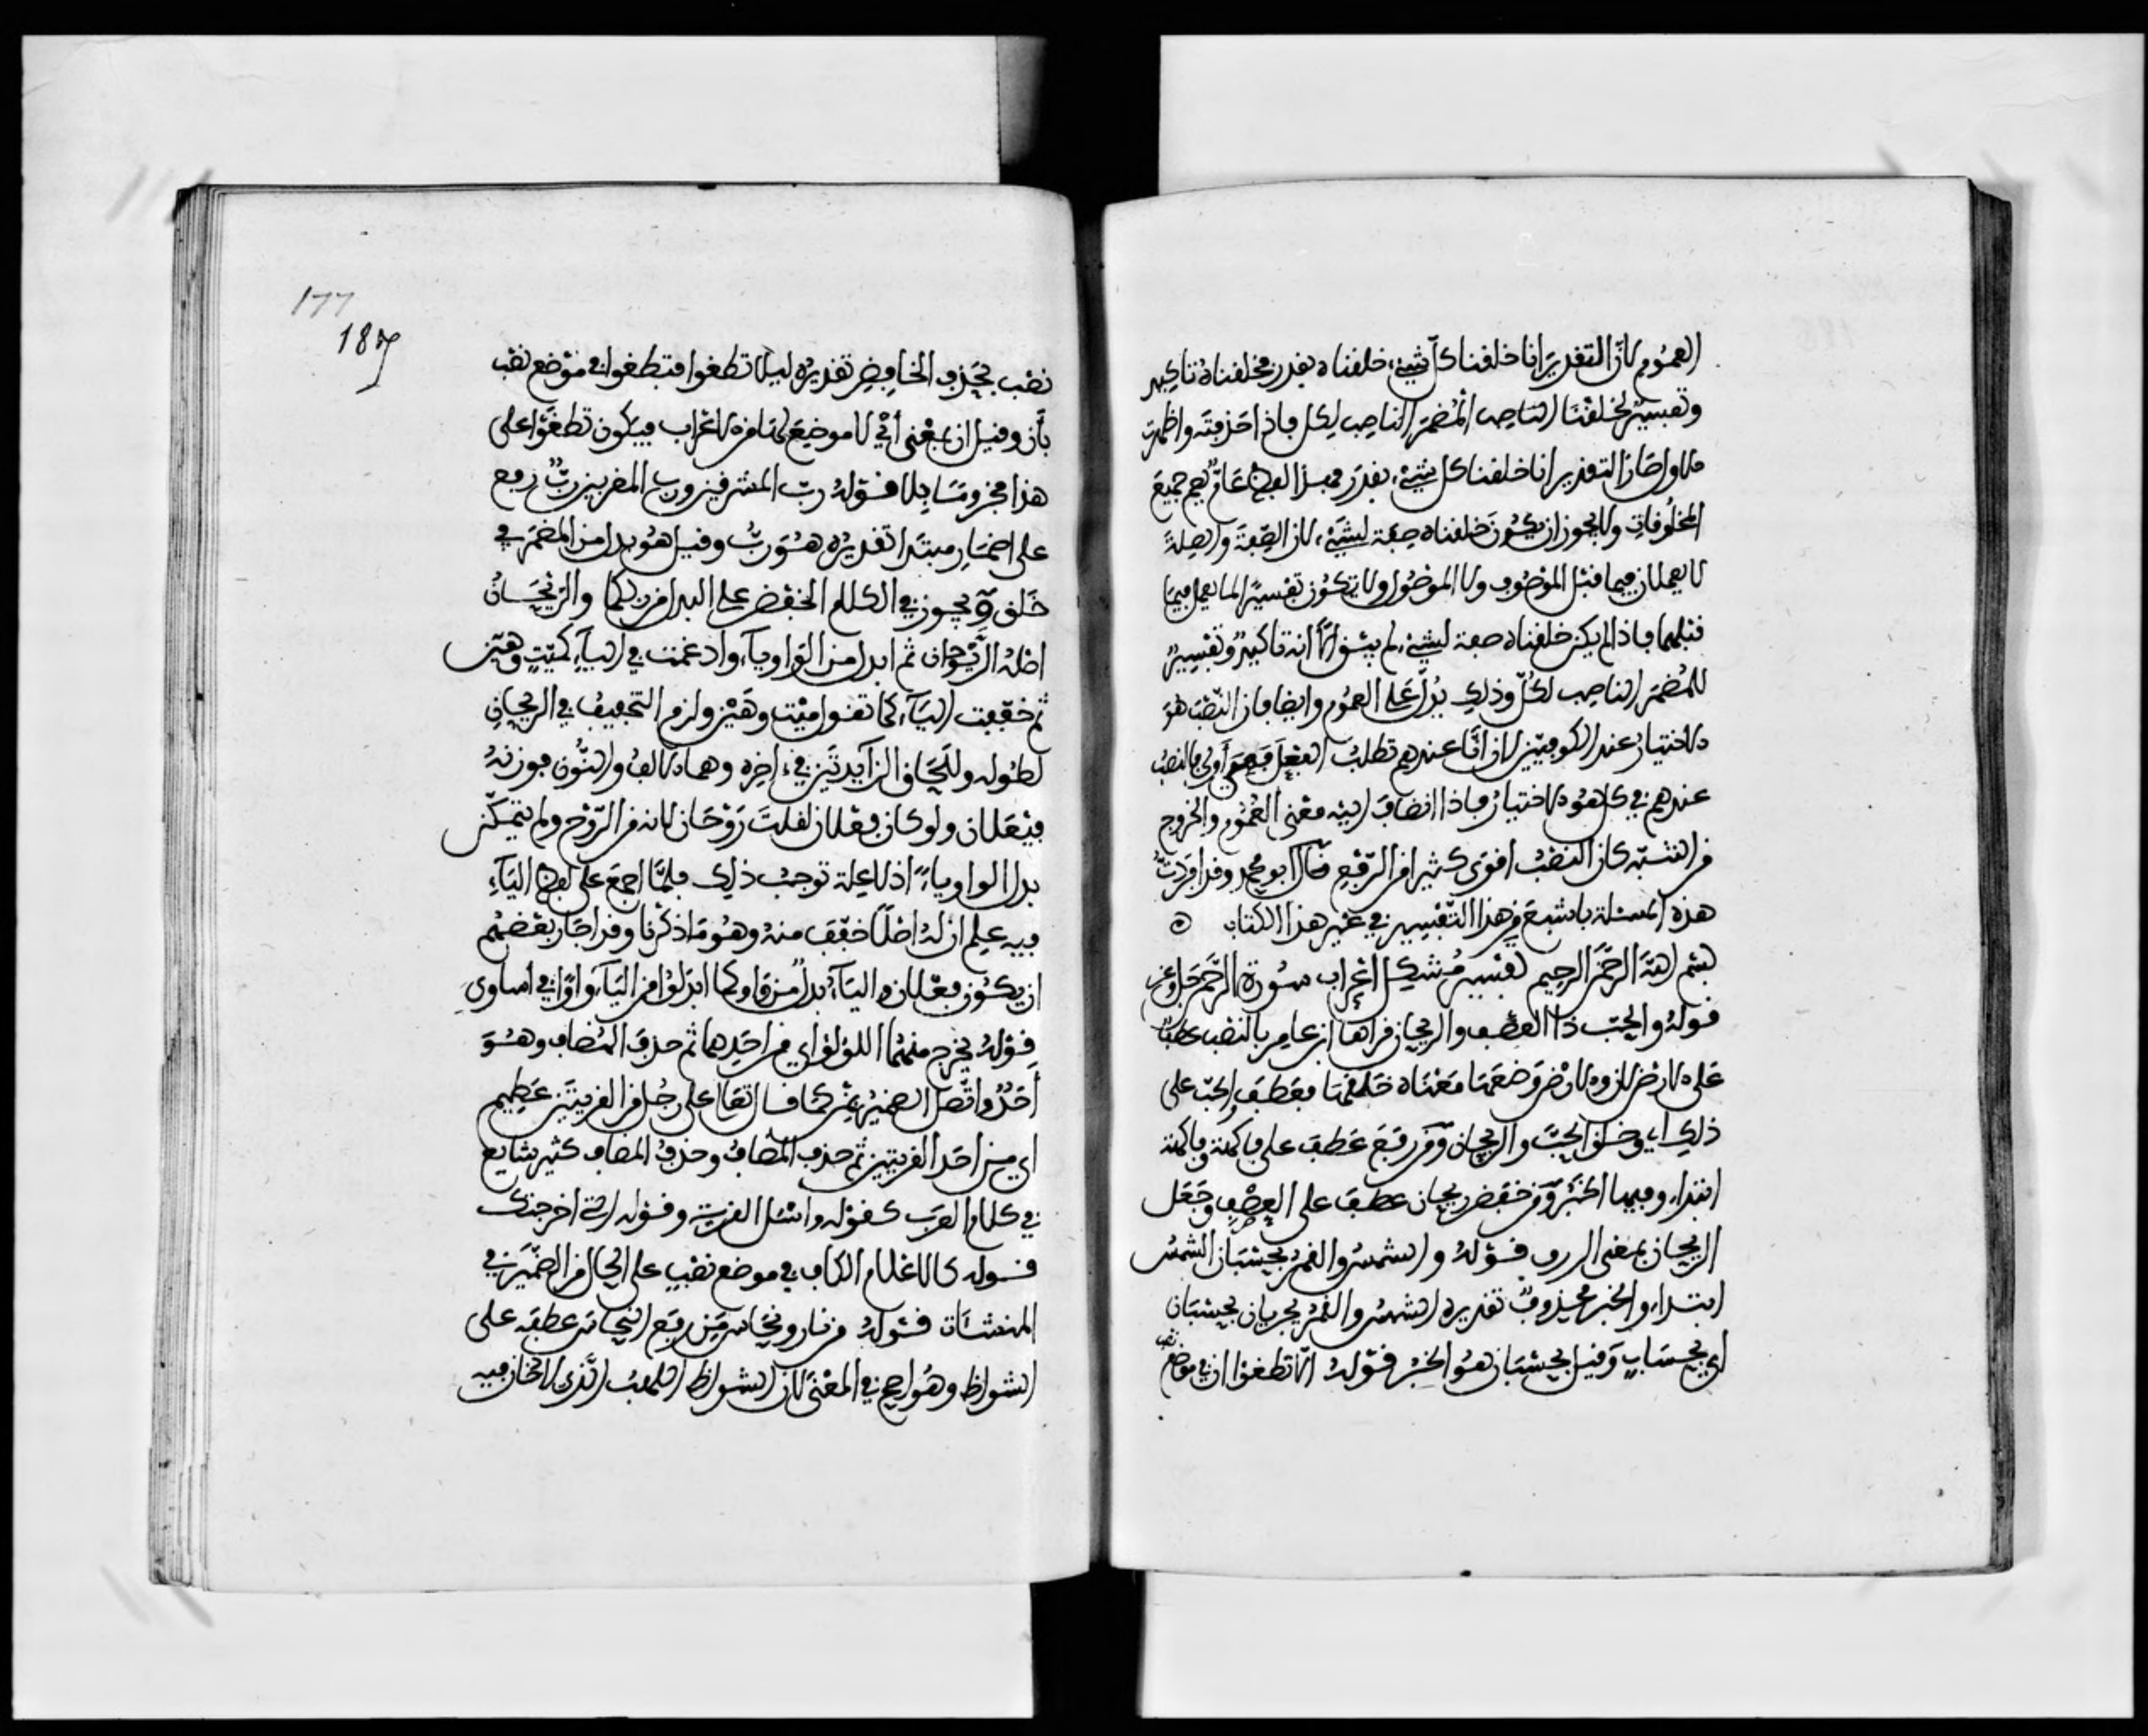 العموم لان التقدير انا خلقنا كل شيء خلقناه بقدر فخلقناه تاكيد
وتفسير لخلقنا الناصب المضمر الناصب لكل فاذا حذفته واظهرت
الاول صار التقدير انا خلقنا كل شيء بقدر فهذا لفظ عام يعم جميع
المخلوقات ولا يجوز ان يكون خلقناه صفة لشيء لان الصفة والصلة
لا يعملان فيما قبل الموصوف ولا الموصول ولا يكون تفسيرا لما يعمل فيما
قبلهما فاذا لم يكن خلقناه صفة لشيء لم يبق الا انه تاكيد وتفسير
للمضمر الناصب لكل وذلك يدل على العموم وايضا فان النصب هو
الاختيار عند الكوفيين لان انا عندهم تطلب الفعل فهي به اولى فالنصب
عندهم في كل هو الاختيار فاذا انضاف اليه معنى العموم والخروج
من الشبه كان النصب اقوى كثيرا من الرفع قال ابو محمد وقد افردت
هذه المسئلة باشبع من هذا التفسير في غير هذا الكتاب
بسم الله الرحمن الرحيم تفسير مشكل اعراب سورة الرحمن جل وعز
قوله والحب ذا العصف والريحان قراها ابن عامر بالنصب عطفا
على الارض لان والارض وضعها معناه خلقها فعطف والحب على
ذلك اي وخلق الحب والريحان ومن رفع عطف على فاكهة وفاكهة
ابتداء وفيها الخبر ومن خفض ريحان عطف على العصف وجعل
الريحان بمعنى الرزق قوله والشمس والقمر بحسبان الشمس
ابتداء والخبر محذوف تقديره الشمس والقمر يجريان بحسبان
اي بحساب وقيل بحسبان هو الخبر قوله الا تطغوا ان في موضع
177
187
نصب بحذف الخافض تقديره ليلا تطغوا فتطغوا في موضع نصب
بان وقيل ان بمعنى اي لا موضع لها من الاعراب فيكون تطغوا على
هذا مجزوما بلا قوله رب المشرقين ورب المغربين رب رفع
على اضمار مبتدا تقديره هو رب وقيل هو بدل من المضمر في
خلق ويجوز في الكلام الخفض على البدل من ربكما والريحان
اصله الريوحان ثم ابدل من الواو ياء وادغمت في الياء كميت وهين
ثم خففت الياء كما تقول ميت وهين ولزم التخفيف في الريحان
لطوله وللحاق الزايدتين في ءاخره وهما الالف والنون فوزنه
فيعلان ولو كان فعلان لقلت روحان لانه من الروح ولم يتمكن
بدل الواو ياء اذ لا علة توجب ذلك فلما اجمع على لفظ الياء
فيه علم ان له اصلا خفف منه وهو ما ذكرنا وقد اجاز بعضهم
ان يكون فعلان والياء بدل من واو كما ابدلوا من الياء واوا في اشاوى
قوله يخرج منهما اللؤلؤ اي من احدهما ثم حذف المضاف وهو
احد واتصل الضمير بمن كما قال تعالى على رجل من القريتين عظيم
اي من احد القريتين ثم حذف المضاف وحذف المضاف كثير شايع
في كلام العرب كقوله واسئل القرية وقوله التي اخرجتك
قوله كالاعلام الكاف في موضع نصب على الحال من الضمير في
المنشئات قوله من نار ونحاس من رفع النحاس عطفه على
الشواظ وهو اصح في المعنى لان الشواظ اللهب الذي لا دخان فيه